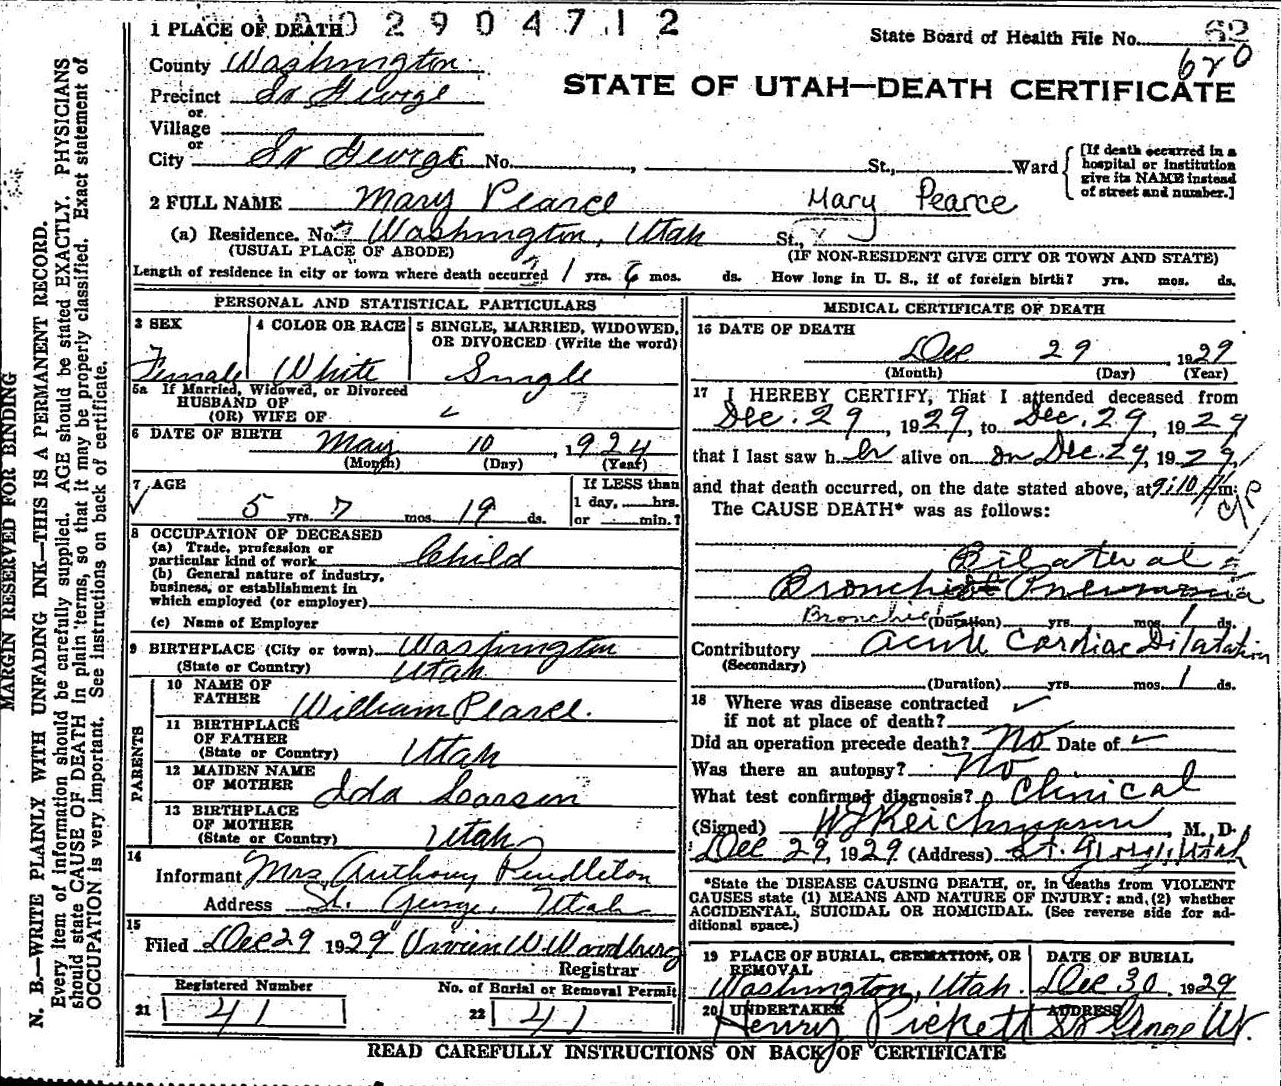 2904712
1 PLACE OF DEATH
State Board of Health File No. 62
620
County Washington
STATE OF UTAH—DEATH CERTIFICATE
Precinct St George
or
Village
or
City St George No. , St., Ward
[If death occurred in a hospital or institution give its NAME instead of street and number.]
2 FULL NAME Mary Pearce Mary Pearce
(a) Residence. No. Washington, Utah St.,
(USUAL PLACE OF ABODE) (IF NON-RESIDENT GIVE CITY OR TOWN AND STATE)
Length of residence in city or town where death occurred 1 yrs. 6 mos. ds. How long in U. S., if of foreign birth? yrs. mos. ds.
PERSONAL AND STATISTICAL PARTICULARS
3 SEX 4 COLOR OR RACE 5 SINGLE, MARRIED, WIDOWED, OR DIVORCED (Write the word)
Female White Single
5a If Married, Widowed, or Divorced
HUSBAND OF
(OR) WIFE OF
6 DATE OF BIRTH May 10, 1924
(Month) (Day) (Year)
7 AGE
If LESS than
1 day, hrs.
or min.?
5 yrs. 7 mos. 19 ds.
8 OCCUPATION OF DECEASED
(a) Trade, profession or
particular kind of work Child
(b) General nature of industry,
business, or establishment in
which employed (or employer)
(c) Name of Employer
9 BIRTHPLACE (City or town) Washington
(State or Country) Utah
PARENTS
10 NAME OF
FATHER William Pearce.
11 BIRTHPLACE
OF FATHER
(State or Country) Utah
12 MAIDEN NAME
OF MOTHER Ida Larsen
13 BIRTHPLACE
OF MOTHER
(State or Country) Utah
14
Informant Mrs Anthony Pendleton
Address St. George, Utah
15
Filed Dec 29 1929 Vivian W. Woodbury
Registrar
Registered Number No. of Burial or Removal Permit
21 41 22 41
MEDICAL CERTIFICATE OF DEATH
16 DATE OF DEATH
Dec 29, 1929
(Month) (Day) (Year)
17 I HEREBY CERTIFY, That I attended deceased from
Dec. 29, 1929, to Dec. 29, 1929
that I last saw her alive on on Dec. 29, 1929,
and that death occurred, on the date stated above, at 9:10 m.
The CAUSE DEATH* was as follows:
Bilateral
Pneumonia
(Duration) yrs. mos. 1 ds.
Contributory Acute Cardiac Dilatation
(Secondary)
(Duration) yrs. mos. 1 ds.
18 Where was disease contracted
if not at place of death?
Did an operation precede death? No Date of
Was there an autopsy? No
What test confirmed diagnosis? Clinical
(Signed) W J Reichmann, M. D.
Dec 29, 1929 (Address) St. George, Utah
*State the DISEASE CAUSING DEATH, or, in deaths from VIOLENT
CAUSES state (1) MEANS AND NATURE OF INJURY: and, (2) whether
ACCIDENTAL, SUICIDAL OR HOMICIDAL. (See reverse side for ad-
ditional space.)
19 PLACE OF BURIAL, CREMATION, OR REMOVAL DATE OF BURIAL
Washington, Utah. Dec 30. 1929
20 UNDERTAKER ADDRESS
Henry Pickett St George Ut.
READ CAREFULLY INSTRUCTIONS ON BACK OF CERTIFICATE
MARGIN RESERVED FOR BINDING
N. B.—WRITE PLAINLY WITH UNFADING INK—THIS IS A PERMANENT RECORD.
Every item of information should be carefully supplied. AGE should be stated EXACTLY. PHYSICIANS
should state CAUSE OF DEATH in plain terms, so that it may be properly classified. Exact statement of
OCCUPATION is very important. See instructions on back of certificate.